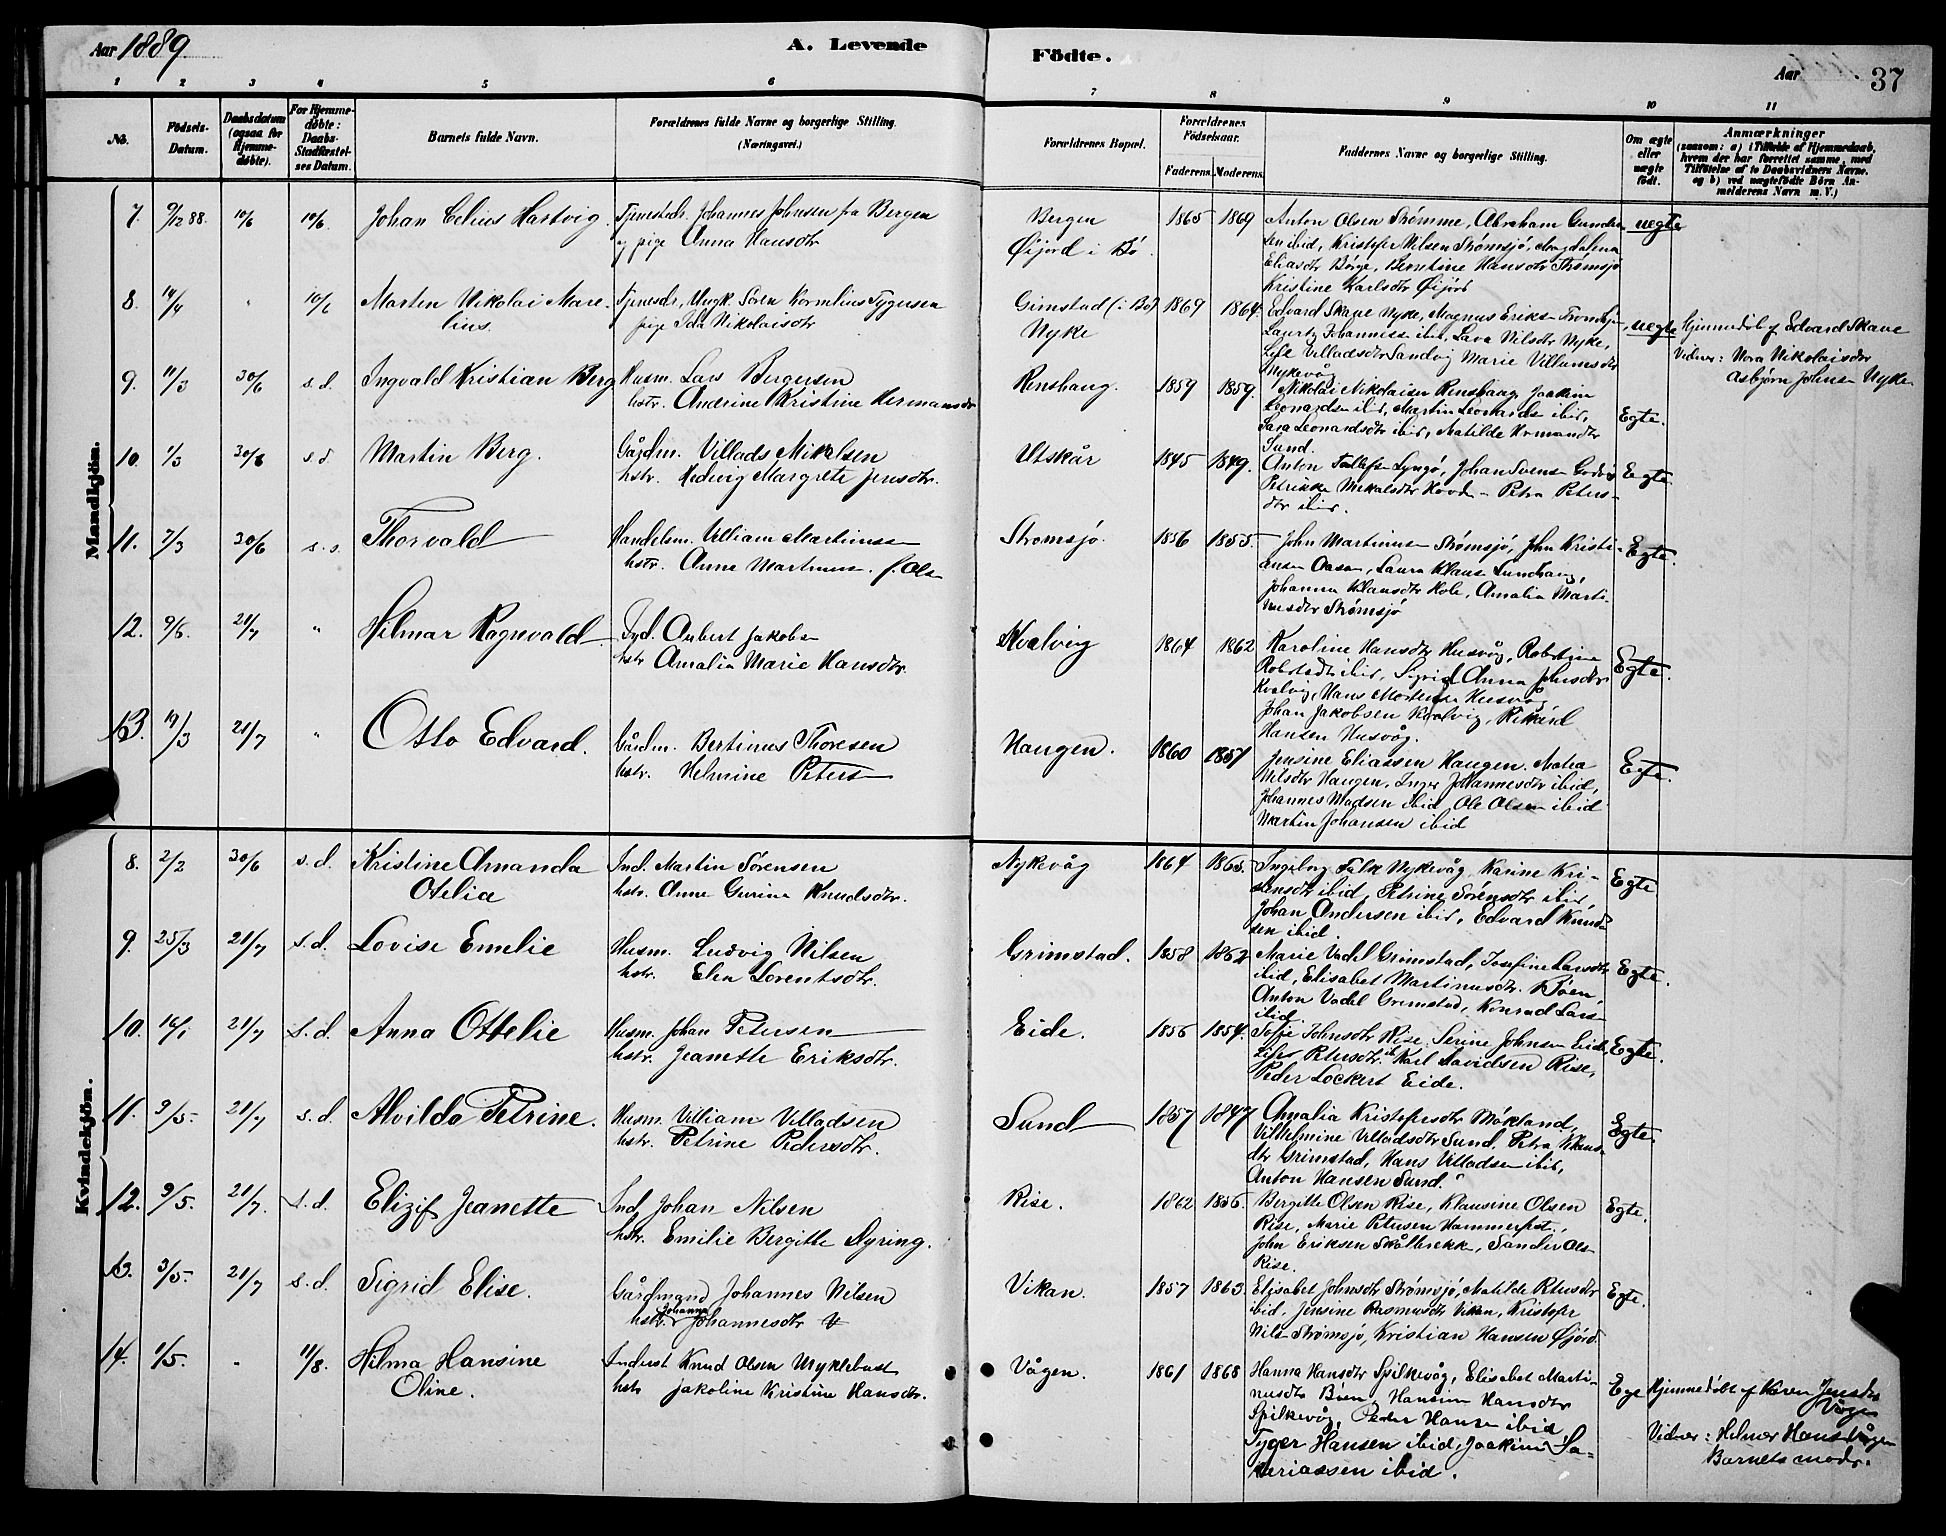 Aar 1889.
A. Levende
Födte.
Aar
37
1 2 3 4 5 6 7 8 9 10 11
No.
Födsels-
Datum.
Daabsdatum
(ogsaa for
Hjemme-
døbte).
For Hjemme-
døbte:
Daabs-
Stadfæstel-
ses Datum.
Barnets fulde Navn.
Forældrenes fulde Navne og borgerlige Stilling.
(Næringsvei.)
Forældrenes Bopæl.
Forældrenes
Födselsaar.
Faderens. Moderens.
Faddernes Navne og borgerlige Stilling.
Om ægte
eller
uægte
födt.
Anmærkninger
(saasom: a) i Tilfælde af Hjemmedaab,
hvem der har forrettet samme, med
Tilföielse af to Daabsvidners Navne.
og b) ved uægtefödte Börn An-
melderens Navn m. V.)
Mandkjön.
7. 9/12 88. 10/6 10/6. Johan Celius Hartvig. Tjenestedr. Johannes Johnsen fra Bergen
og pige Anna Hansdtr
Bergen 1865 1869
Øijord i Bø.
Anton Olsen Strømme, Abraham
ibid, Kristofer Nilsen Strømsjø, Magdalena
Eliasdtr Börge, Berntine Hansdtr Strømsjø
Kristine Karlsdtr Øijord
uegte
8. 14/4 " 10/6 Martin Nikolai Mare-
lius.
Ungk. Sören Kornelius Tygersen
pige Ida Nikolaisdtr
Grimstad (i Bø) 1869 1864.
Nyke
Edvard Skave Nyke, Magnus Eriksen
Lauritz Johannessen ibid, Lava Nilsdtr Nyke,
Villadsdtr Sandvig Marie Villumsdtr
Nykevåg
uegte
Hjemmedöbt af Edvard Skave
Vidner: Nora Nikolaisdtr
Asbjørn Johnsen Nyke
9. 11/3 30/6 s.d. Ingvald Kristian Berg Husm. Lars Bergersen
hstr. Andrine Kristine Hermansdtr
Renshaug. 1859 1859.
Nikolai Nikolaisen Renshaug, Joakim
Leonardsen ibid, Martin Leonardsen ibid,
Sara Leonardsdtr ibid, Matilde
Sund.
Egte.
10. 1/3 30/6 s.d Martin Berg. Gårdm. Villads Mikalsen
hstr. Hedvig Margrete Jensdtr.
Utskår 1845 1849.
Anton Lyngö, Johan Svensen
Petrikke Mikalsdtr Hovd - Petra Peters-
dtr ibid.
Egte
11. 7/3 30/6 s.d. Thorvald Handelsm. Villiam Martinussen
hstr. Anna Martinus. f. Olsen
Strømsjø. 1856 1855.
John Martinussen Strømsjø, John Kristi-
ansen Aasen, Laura Klausen
Johanna Klausdtr Hole, Amalia Marti-
nusdtr Strømsjø
Egte.
12. 9/6. 21/7 " Hilmar Ragnvald. Aubert Jakobsen
hstr Amalia Marie Hansdtr.
Kvalvig 1864 1862
Karoline Hansdtr Husvåg,
ibid, Sigrid Anna Johnsdtr
Kvalvig, Hans Mortensen Husvåg
Johan Jakobsen Kvalvig, Rikard
Hansen Husvåg.
Egte.
13. 14/3 21/7 " Otto Edvard. Gårdm. Bertinus Thoresen
hstr. Helmine Peters
Haugen. 1860 1857
Jensine Eliassen Haugen.
Nilsdtr Haugen, Inger Johannesdtr ibid,
Johannes Madsen ibid, Ole Olsen ibid
Martin Johansen ibid
Egte.
Kvindekjön.
8. 2/2 30/6 s.d. Kristine Amanda
Otelia
Ind. Martin Sörensen
hstr. Anne Gurine Knudsdtr.
Nykevåg 1864 1865.
Ingeborg Falk Nykevåg, Karine Kri-
stensdtr ibid, Petrine Sörensdtr ibid,
Johan Andersen ibid, Edvard Knud-
sen ibid.
Egte
9. 25/3 21/7 s.d. Lovise Emelie Husm. Ludvig Nilsen
hstr. Elen Lorentsdtr.
Grimstad. 1858 1862
Marie Vadel Grimstad, Josefine Larsdtr
ibid, Elisabet Martinusdtr. Böen,
Anton Vadel Grimstad, Konrad Lars-
ibid
Egte.
10. 14/1 21/7 s.d. Anna Ottelie Husm. Johan Petersen
hstr. Jeanette Eriksdtr.
Eide. 1856 1854.
Sofie Johnsdtr Rise, Serine Johnsen Eide,
Petersdtr Karl Davidsen Rise,
Peder Lockert Eide.
Egte.
11. 9/5. 21/7 s.d. Alvilda Petrine. Husm. Villiam Villadsen
hstr. Petrine Pedersdtr.
Sund 1857 1847
Amalia Kristofersdtr Mökland,
Vilhelmine Villadsdtr Sund. Petra Klaus-
dtr Grimstad, Hans Villadsen ibid,
Anton Hansen Sund.
Egte
12. 9/5. 21/7. s.d. Elizif Jeanette Ind. Johan Nilsen
hstr. Emilie Bergitte Nyring.
Rise. 1862 1856.
Bergitte Olsen Rise, Klausine Olsen
Rise, Marie Petersen Hammerfest,
John Eriksen Skålbrekk, Sander Ols-
Rise.
Egte.
13. 3/5. 21/7 s.d. Sigrid Elise. Gårdmand Johannes Nilsen
hstr. Johanna Johannesdtr
Vikan. 1857 1863.
Elisabet Johnsdtr Strømsjø, Matilde Petersdtr
ibid, Jensine Rasmusdtr Vikan, Kristofer
Nils- Strømsjø, Kristian Hansen Øjörd
Egte.
14. 1/5. " 11/8. Hilma Hansine
Oline.
Inderst Knud Olsen Myklebust
hstr Jakoline Kristine Hansdtr.
Vågen. 1861 1868
Hanna Hansdtr Spilkevåg, Elisabet Marti-
nusdtr Böen, Hansine Hansdtr
Spilkevåg, Peder Hansen ibid
Tyger Hansen ibid, Joakim Sa-
kariassen ibid.
Egte
Hjemmedöbt af Karen Jensdtr
Vågen
Vidner: Helmer Hans- Vågen
Barnets moder.